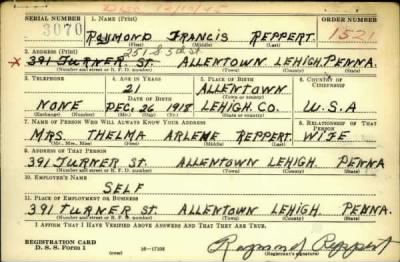 Dec 12/10/45
SERIAL NUMBER 1. NAME (Print) ORDER NUMBER
3070 RAYMOND FRANCIS REPPERT. 1521
(First) (Middle) (Last)
2. ADDRESS (Print) 251 S 5th St
x 391 TURNER. St. ALLENTOWN LEHIGH, PENNA.
(Number and street or R. F. D. number) (Town) (County) (State)
3. TELEPHONE 4. AGE IN YEARS 5. PLACE OF BIRTH 6. COUNTRY OF CITIZENSHIP
21 ALLENTOWN
DATE OF BIRTH (Town or county)
NONE DEC. 26 1918 LEHIGH. CO. U.S.A
(Exchange) (Number) (Mo.) (Day) (Yr.) (State or country)
7. NAME OF PERSON WHO WILL ALWAYS KNOW YOUR ADDRESS 8. RELATIONSHIP OF THAT PERSON
MRS. THELMA ARLENE REPPERT. WIFE
(Mr., Mrs., Miss) (First) (Middle) (Last)
9. ADDRESS OF THAT PERSON
391 TURNER ST. ALLENTOWN LEHIGH PENNA
(Number and street or R. F. D. number) (Town) (County) (State)
10. EMPLOYER'S NAME
SELF
11. PLACE OF EMPLOYMENT OR BUSINESS
391 TURNER ST. ALLENTOWN LEHIGH PENNA.
(Number and street or R. F. D. number) (Town) (County) (State)
I AFFIRM THAT I HAVE VERIFIED ABOVE ANSWERS AND THAT THEY ARE TRUE.
REGISTRATION CARD
D. S. S. Form 1 16—17105 Raymond Reppert